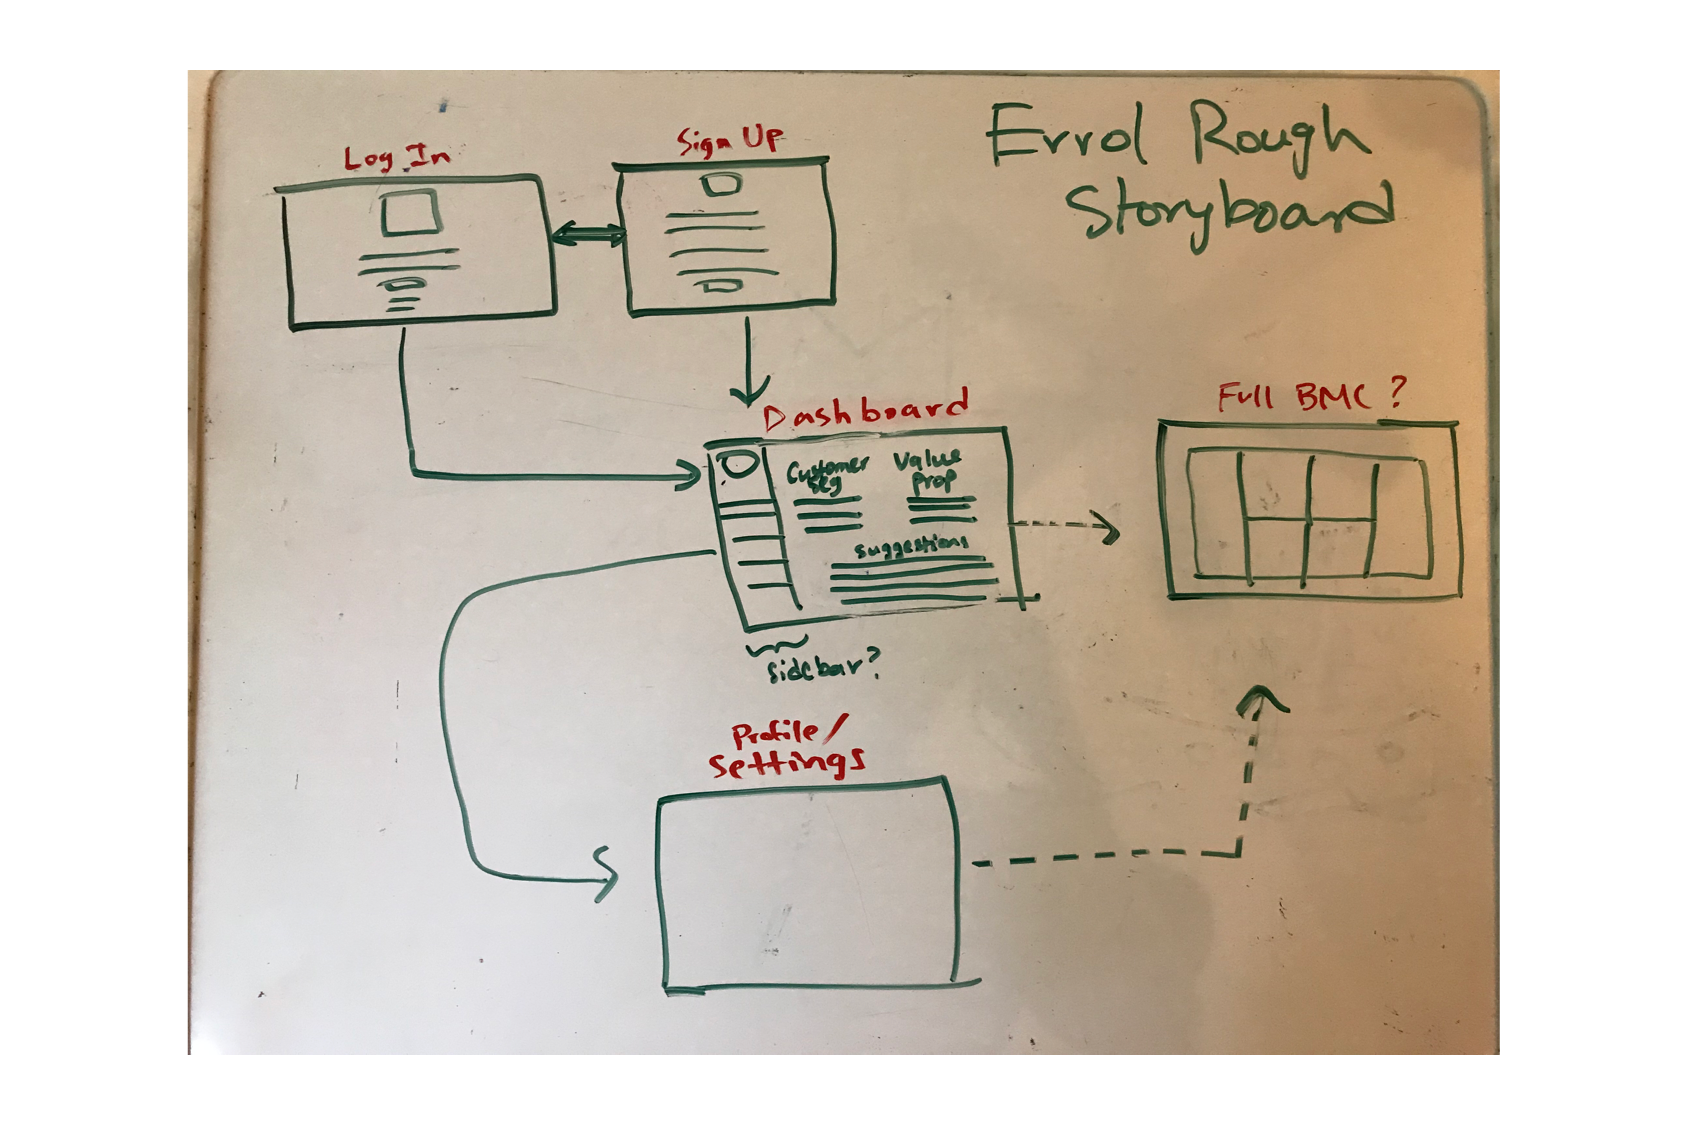 Errol Rough
Storyboard
Log In
Sign Up
Dashboard
Customer
Seg
Value
Prop
suggestions
sidebar?
Full BMC?
Profile/
Settings